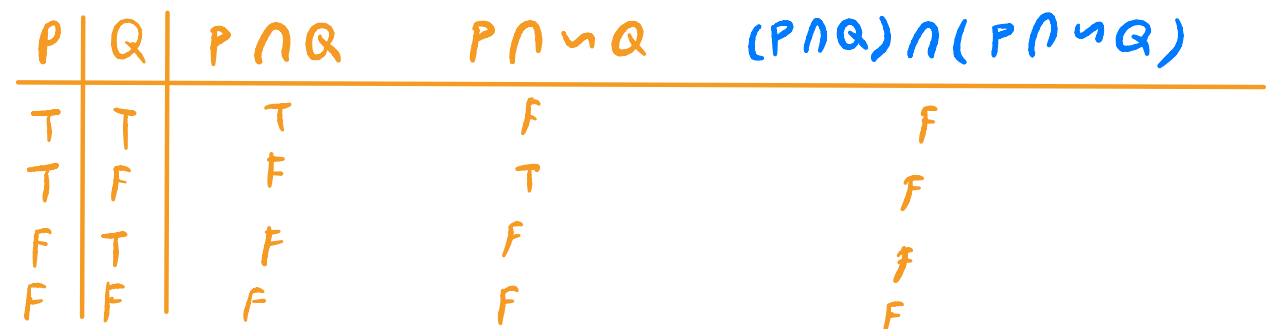 P Q P ∩ Q P ∩ ~ Q (P ∩ Q) ∩ (P ∩ ~ Q)
T T T F F
T F F T F
F T F F F
F F F F F